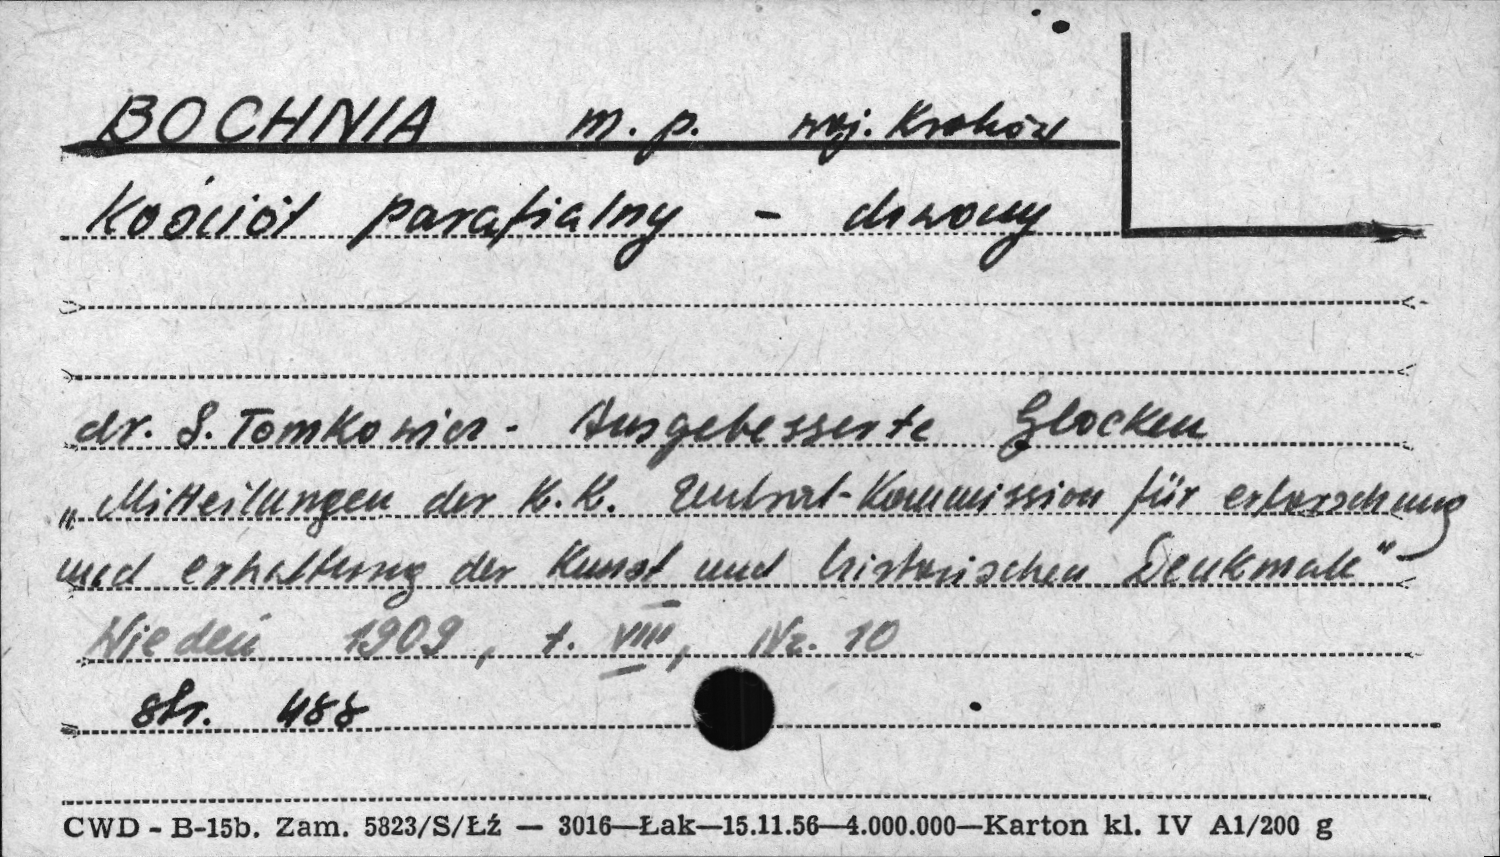 BOCHNIA m. p. woj. Kraków
Kościół parafialny - dzwony
dr. S. Tomkowicz - Ausgebesserte Glocken
„Mitteilungen der K. K. Zentral-Kommission für erforschung
und erhaltung der Kunst und historischen Denkmale"
Wiedeń 1909, t. VIII, Nr. 10
str. 488
CWD - B-15b. Zam. 5823/S/Łź — 3016—Łak—15.11.56—4.000.000—Karton kl. IV A1/200 g